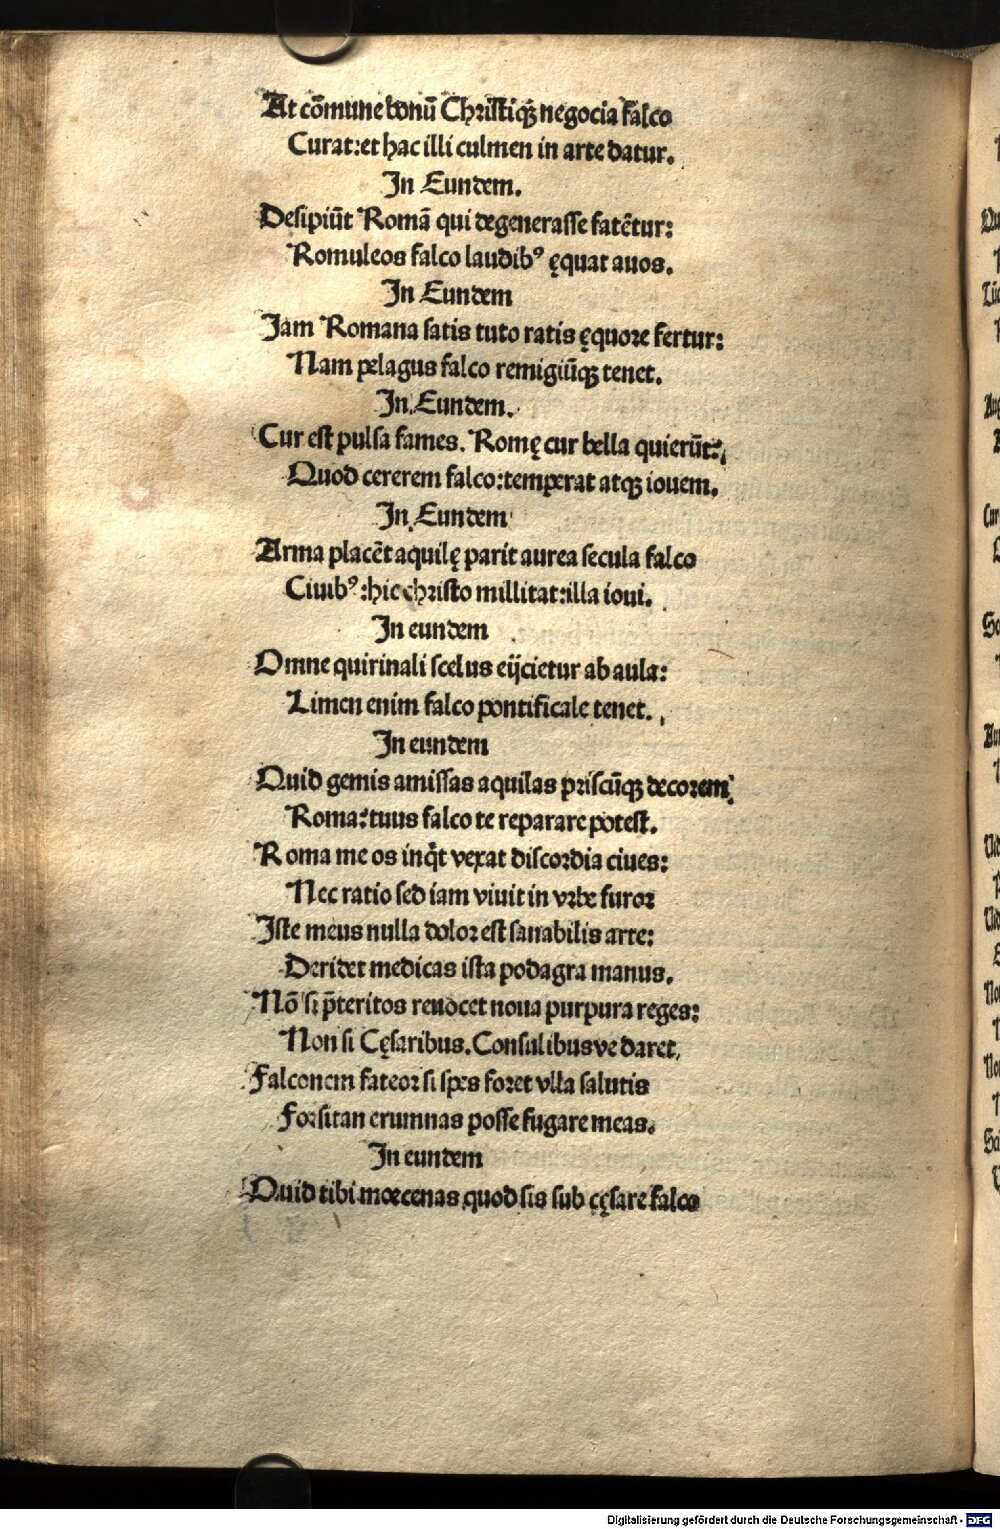 At cōmune bonū Christiqꝫ negocia falco
Curat: et hac illi culmen in arte datur.
In Eundem.
Desipiūt Romā qui degenerasse fatētur:
Romuleos falco laudibꝰ ęquat auos.
In Eundem
Jam Romana satis tuto ratis ęquore fertur:
Nam pelagus falco remigiūqꝫ tenet.
In Eundem.
Cur est pulsa fames. Romę cur bella quierūt?
Quod cererem falco: temperat atqꝫ iouem.
In Eundem
Arma placēt aquilę parit aurea secula falco
Ciuibꝰ: hic christo millitat: illa ioui.
In eundem
Omne quirinali scelus eijcietur ab aula:
Limen enim falco pontificale tenet.
In eundem
Quid gemis amissas aquilas priscūqꝫ decorem
Roma? tuus falco te reparare potest.
Roma me os inq̇t vexat discordia ciues:
Nec ratio sed iam viuit in vrbe furor
Iste meus nulla dolor est sanabilis arte:
Deridet medicas ista podagra manus.
Nō si p̄teritos reuocet noua purpura reges:
Non si Cęsaribus. Consulibus ve daret,
Falconem fateor si spes foret vlla salutis
Forsitan erumnas posse fugare meas.
In eundem
Quid tibi mœcenas quod sis sub cęsare falco
Digitalisierung gefördert durch die Deutsche Forschungsgemeinschaft - DFG